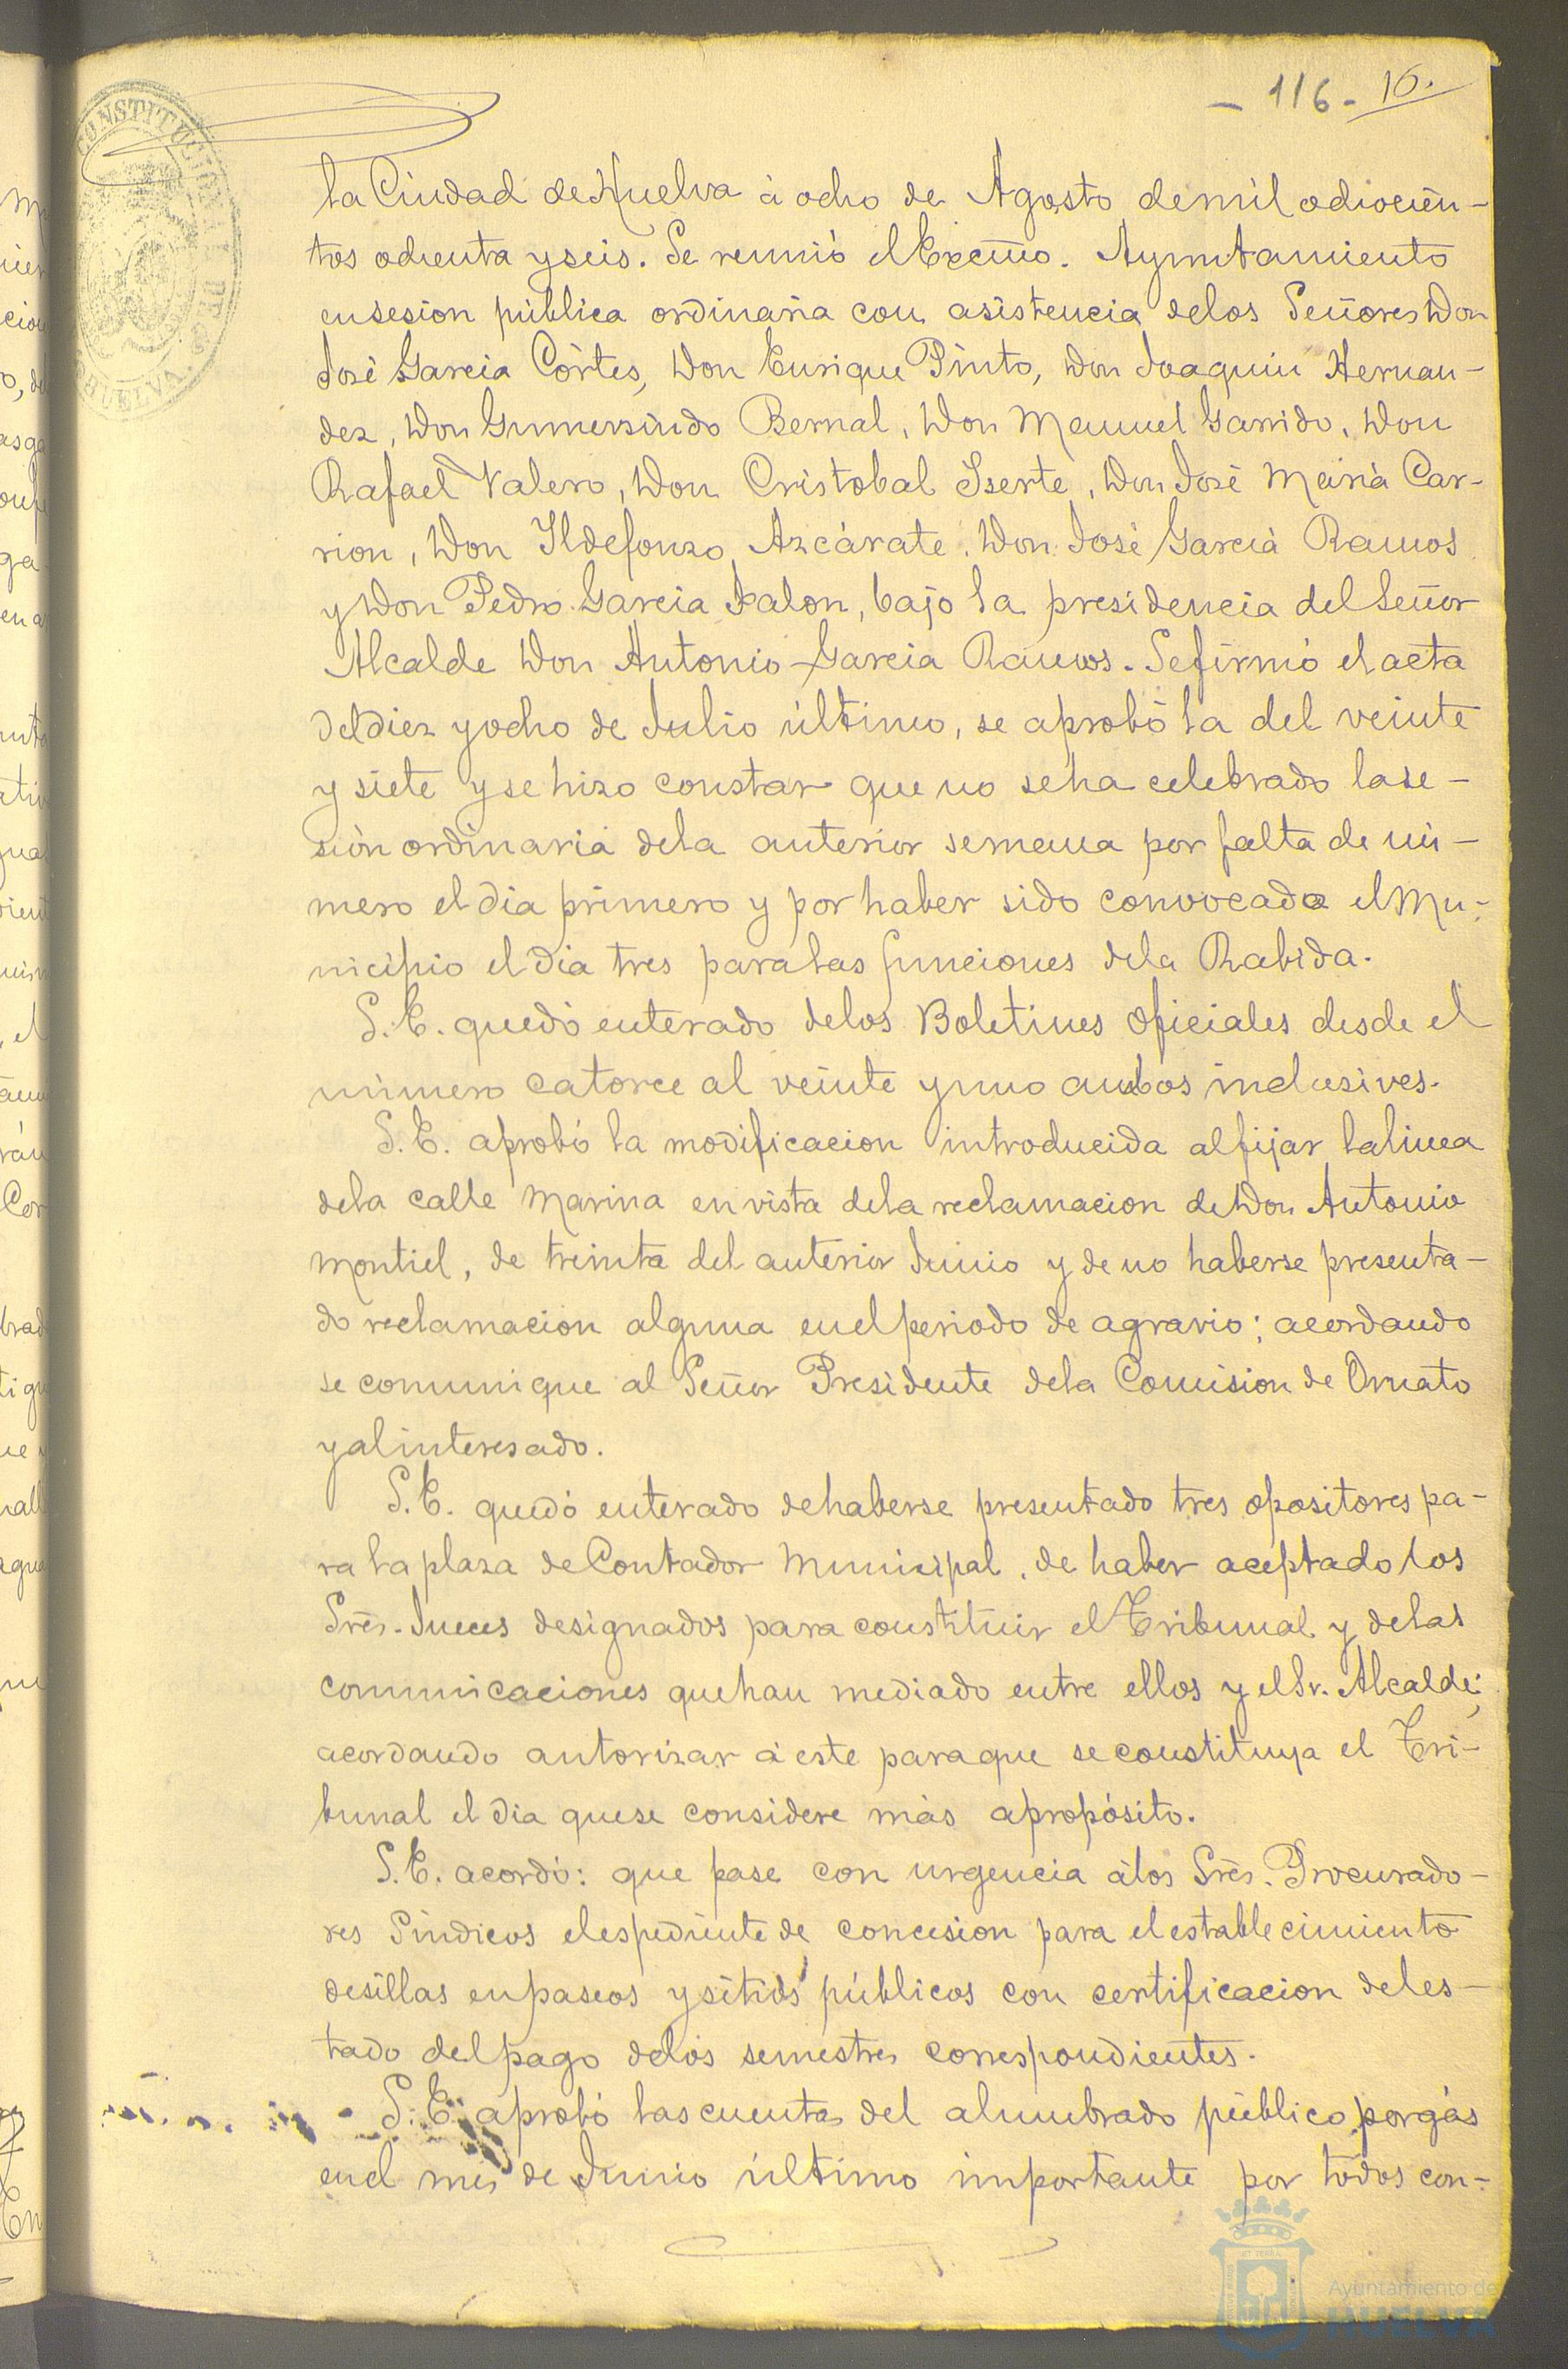 - 116 - 16.
CONSTITUCIONAL DE
HUELVA.
la Ciudad de Huelva á ocho de Agosto de mil ochocien-
tos ochenta y seis. Se reunió el Excmo. Ayuntamiento
en sesion pública ordinaria con asistencia de los Señores Don
José Garcia Córtes, Don Enrique Pinto, Don Joaquin Hernan-
dez, Don Gumersindo Bernal, Don Manuel Garrido, Don
Rafael Valero, Don Cristobal Iserte, Don José Maria Car-
rion, Don Ildefonzo Azcárate, Don José Garcia Ramos
y Don Pedro Garcia Jalon, bajo la presidencia del Señor
Alcalde Don Antonio Garcia Ramos. Se firmó el acta
del diez y ocho de Julio último, se aprobó la del veinte
y siete y se hizo constar que no se ha celebrado la se-
sion ordinaria de la anterior semana por falta de nú-
mero el dia primero y por haber sido convocado el Mu-
nicipio el dia tres para las funciones de la Rabida.
S. E. quedó enterado de los Boletines oficiales desde el
número catorce al veinte y uno ambos inclusives.
S. E. aprobó la modificacion introducida al fijar la linea
de la calle Marina en vista de la reclamacion de Don Antonio
Montiel, de treinta del anterior Junio y de no haberse presenta-
do reclamacion alguna en el periodo de agravio; acordando
se comunique al Señor Presidente de la Comision de Ornato
y al interesado.
S. E. quedó enterado de haberse presentado tres opositores pa-
ra la plaza de Contador Municipal, de haber aceptado los
Sres. Jueces designados para constituir el Tribunal y de las
comunicaciones que han mediado entre ellos y el Sr. Alcalde;
acordando autorizar á este para que se constituya el Tri-
bunal el dia que se considere más apropósito.
S. E. acordó: que pase con urgencia á los Sres. Procurado-
res Sindicos el espediente de concesion para el establecimiento
de sillas en paseos y sitios públicos con certificacion del es-
tado del pago de los semestres correspondientes.
S. E. aprobó las cuentas del alumbrado público por gás
en el mes de Junio último importante por todos con-
Ayuntamiento de
HUELVA